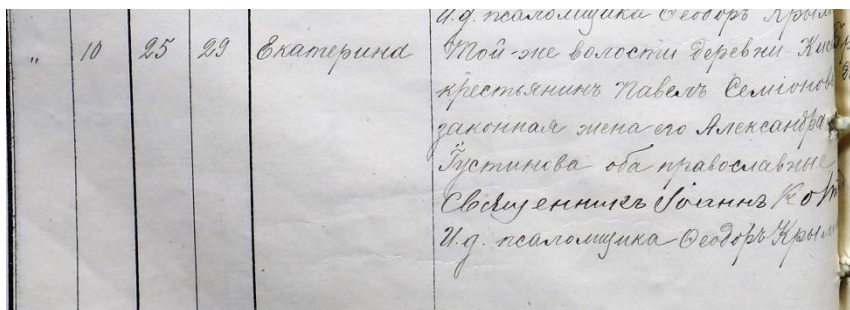 И.д. псаломщика Ѳеодоръ Крым
" 10 25 29 Екатерина Той-же волости деревни
крестьянинъ Павелъ Семіонов
законная жена его Александра
Іустинова оба православные
Священникъ Іоаннъ Кот
И.д. псаломщика Ѳеодоръ Крым